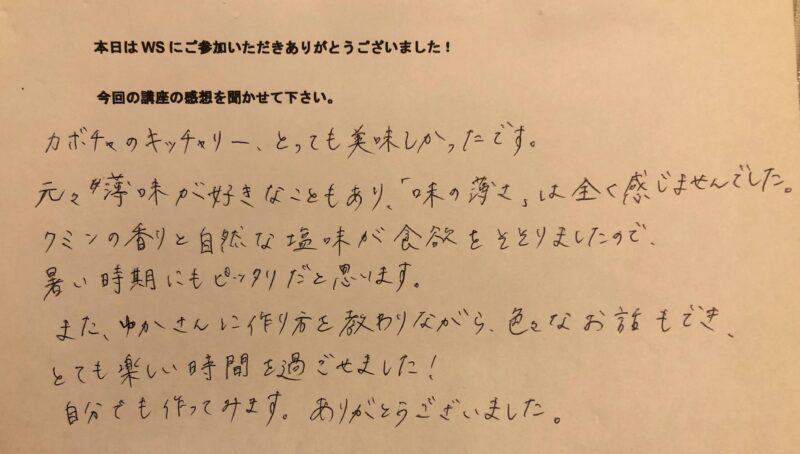 本日は WS にご参加いただきありがとうございました！
今回の講座の感想を聞かせて下さい。
カボチャのキッチャリー、とっても美味しかったです。
元々薄味が好きなこともあり、「味の薄さ」は全く感じませんでした。
クミンの香りと自然な塩味が食欲をそそりましたので、
暑い時期にもピッタリだと思います。
また、ゆかさんに作り方を教わりながら、色々なお話もでき、
とても楽しい時間を過ごせました！
自分でも作ってみます。ありがとうございました。